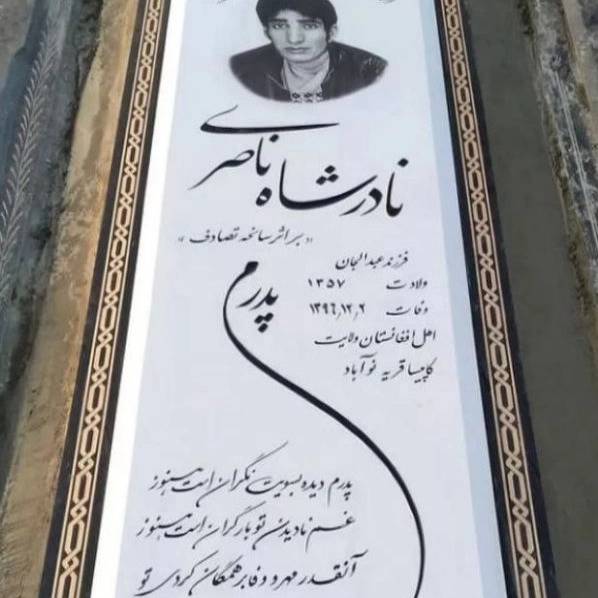 نادرشاه ناصری
«بر اثر سانحه تصادف»
فرزند عبدالجان
ولادت ۱۳۵۷
وفات ۱۳۹۶,۱۲,۲
اهل افغانستان ولایت
کاپیسا قریه نوآباد
پدرم
پدرم دیده بسویت نگران است هنوز
غم نادیدن تو بار گران است هنوز
آنقدر مهر و وفا بر همگان کردی تو